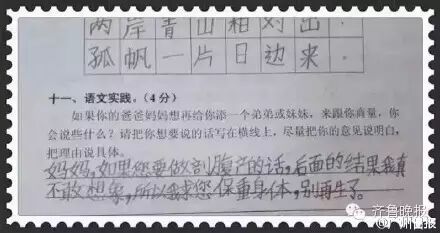 两岸青山相对出.
孤帆一片日边来.
十一、语文实践。(4分)
如果你的爸爸妈妈想再给你添一个弟弟或妹妹，来跟你商量，你
会说些什么？请把你想要说的话写在横线上，尽量把你的意见说明白，
把理由说具体。
妈妈,如果您要做剖腹产的话,后面的结果我真
不敢想象,所以我求您保重身体,别再生了。
齐鲁晚报